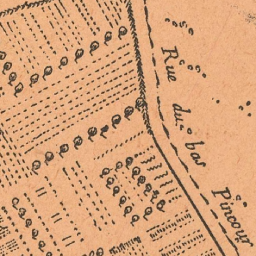 Rue du bas Pincour